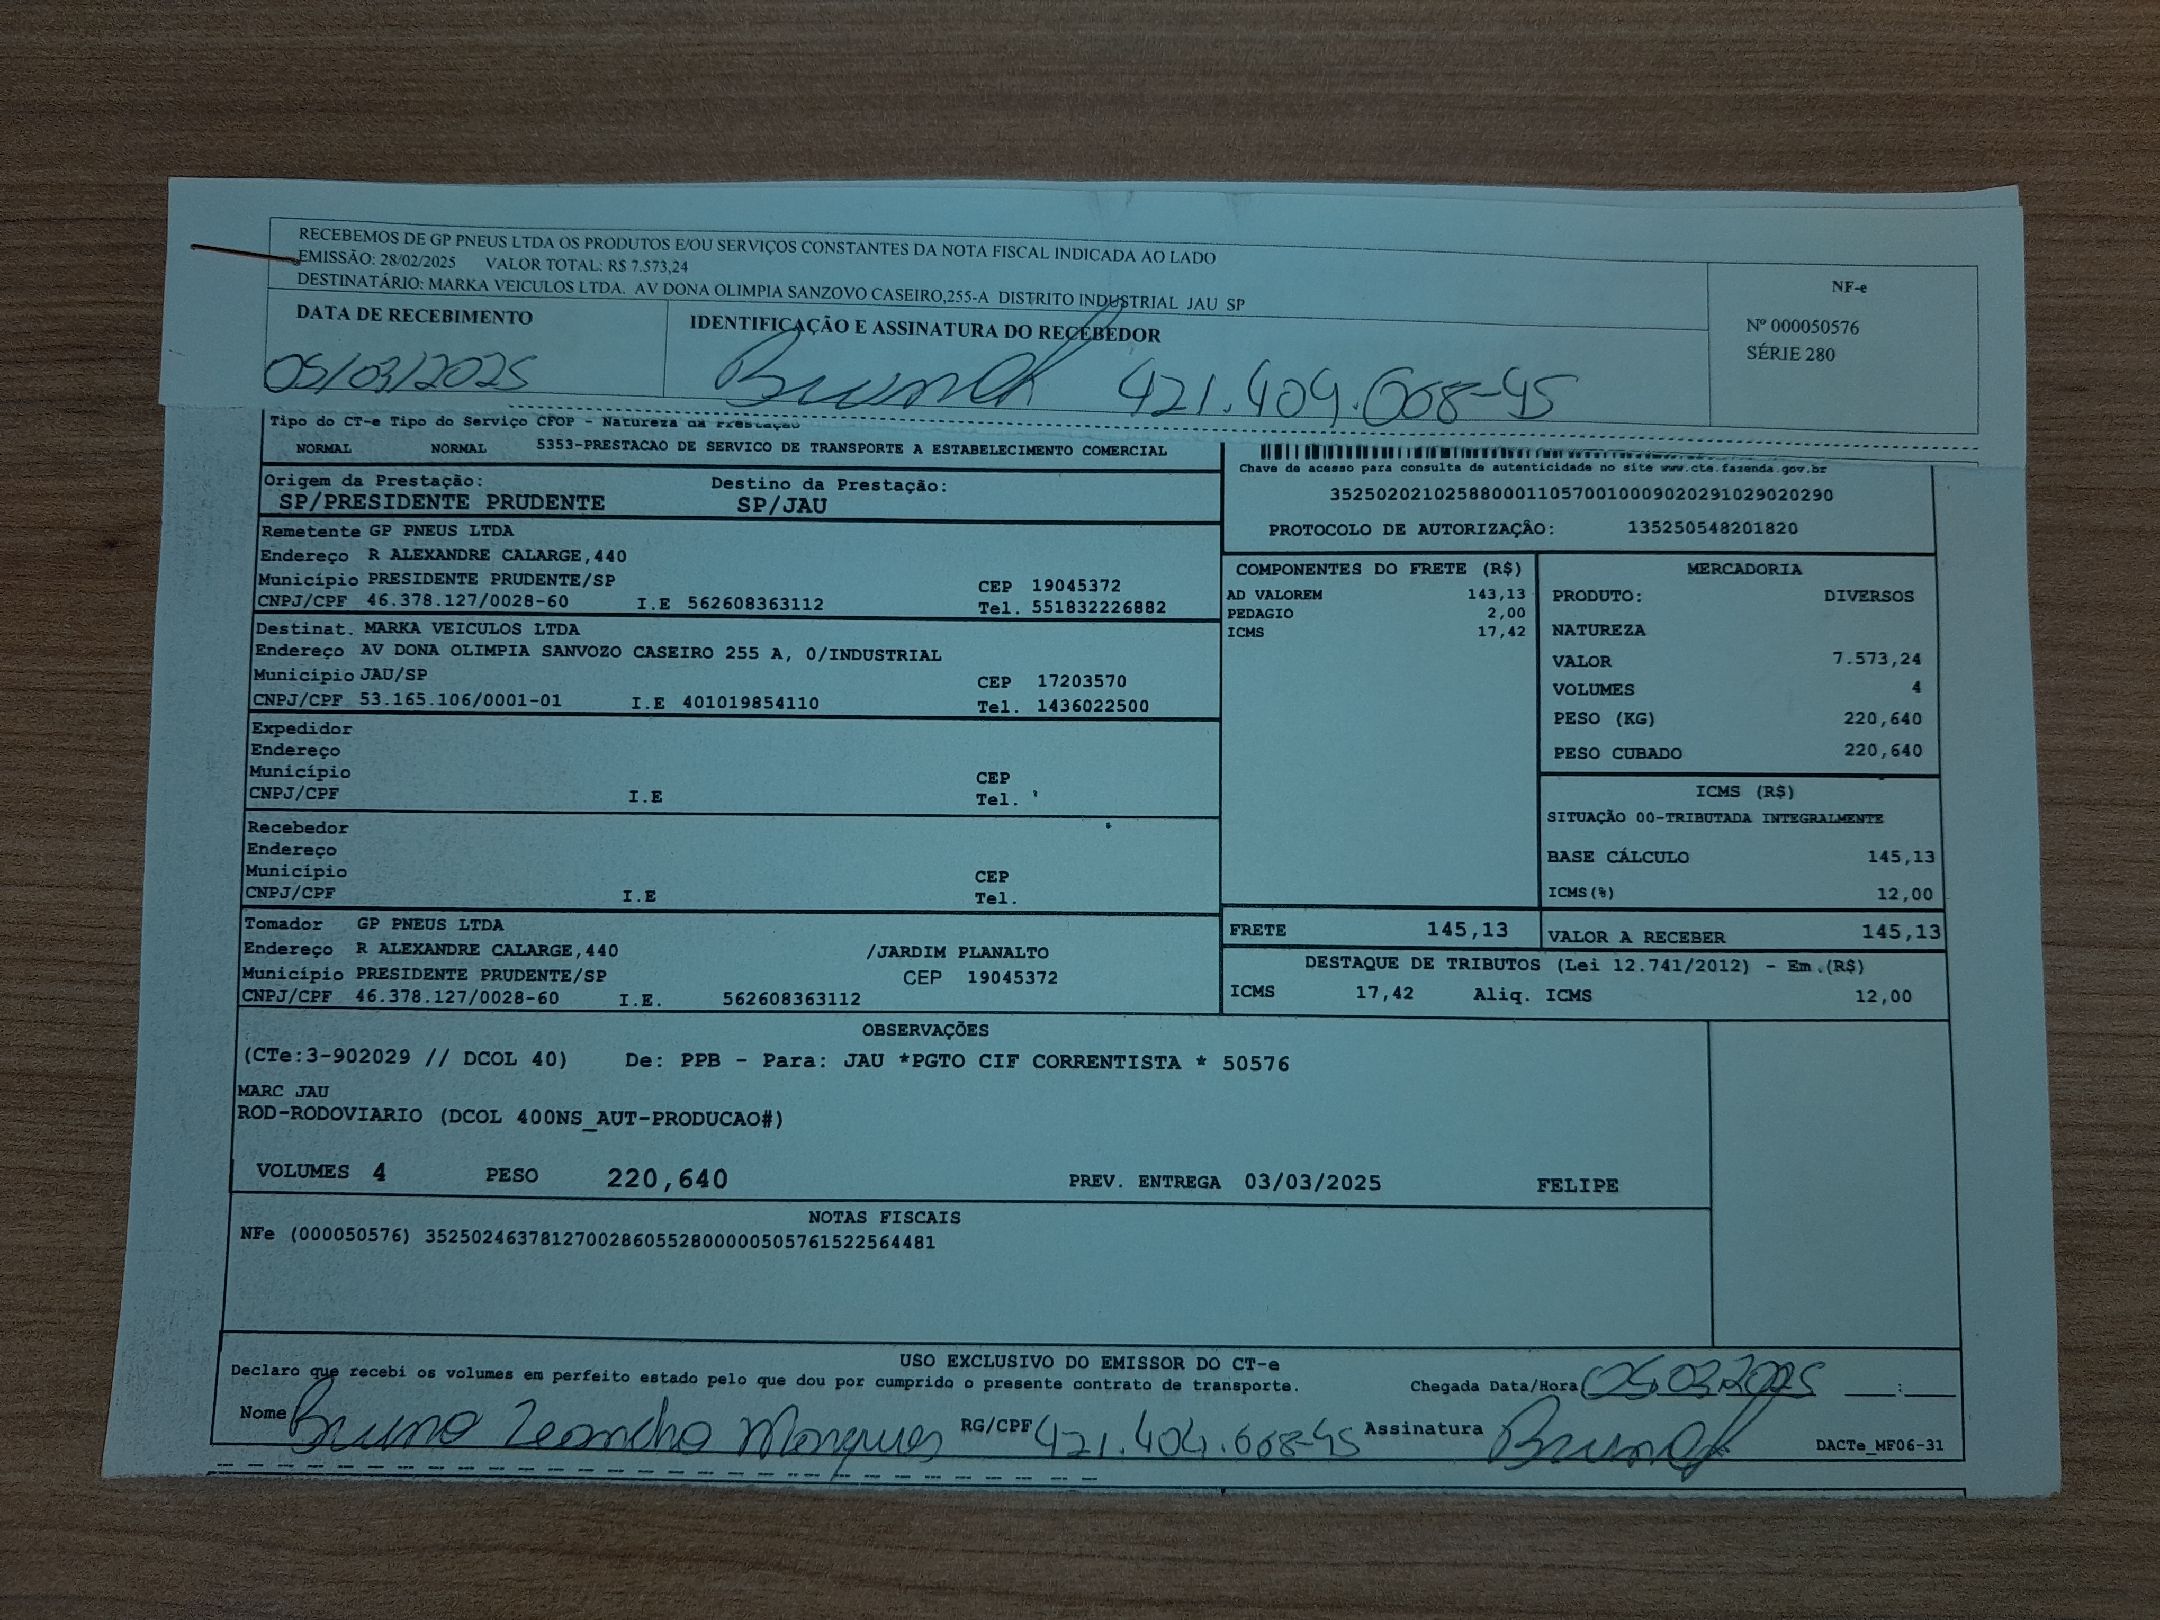 RECEBEMOS DE GP PNEUS LTDA OS PRODUTOS E/OU SERVIÇOS CONSTANTES DA NOTA FISCAL INDICADA AO LADO
EMISSÃO: 28/02/2025 VALOR TOTAL: R$ 7.573,24
DESTINATÁRIO: MARKA VEICULOS LTDA. AV DONA OLIMPIA SANZOVO CASEIRO,255-A DISTRITO INDUSTRIAL JAU SP
NF-e
Nº 000050576
SÉRIE 280
DATA DE RECEBIMENTO IDENTIFICAÇÃO E ASSINATURA DO RECEBEDOR
05/03/2025 421.404.668-45
Tipo do CT-e Tipo do Serviço CFOP - Natureza da Prestação
NORMAL NORMAL 5353-PRESTACAO DE SERVICO DE TRANSPORTE A ESTABELECIMENTO COMERCIAL
Chave de acesso para consulta de autenticidade no site www.cte.fazenda.gov.br
35250202102588000110570010009020291029020290
PROTOCOLO DE AUTORIZAÇÃO: 135250548201820
Origem da Prestação: Destino da Prestação:
SP/PRESIDENTE PRUDENTE SP/JAU
Remetente GP PNEUS LTDA
Endereço R ALEXANDRE CALARGE,440
Município PRESIDENTE PRUDENTE/SP CEP 19045372
CNPJ/CPF 46.378.127/0028-60 I.E 562608363112 Tel. 551832226882
Destinat. MARKA VEICULOS LTDA
Endereço AV DONA OLIMPIA SANVOZO CASEIRO 255 A, 0/INDUSTRIAL
Município JAU/SP CEP 17203570
CNPJ/CPF 53.165.106/0001-01 I.E 401019854110 Tel. 1436022500
Expedidor
Endereço
Município CEP
CNPJ/CPF I.E Tel.
Recebedor
Endereço
Município CEP
CNPJ/CPF I.E Tel.
Tomador GP PNEUS LTDA
Endereço R ALEXANDRE CALARGE,440 /JARDIM PLANALTO
Município PRESIDENTE PRUDENTE/SP CEP 19045372
CNPJ/CPF 46.378.127/0028-60 I.E. 562608363112
COMPONENTES DO FRETE (R$)
AD VALOREM 143,13
PEDAGIO 2,00
ICMS 17,42
MERCADORIA
PRODUTO: DIVERSOS
NATUREZA
VALOR 7.573,24
VOLUMES 4
PESO (KG) 220,640
PESO CUBADO 220,640
ICMS (R$)
SITUAÇÃO 00-TRIBUTADA INTEGRALMENTE
BASE CÁLCULO 145,13
ICMS(%) 12,00
FRETE 145,13 VALOR A RECEBER 145,13
DESTAQUE DE TRIBUTOS (Lei 12.741/2012) - Em (R$)
ICMS 17,42 Aliq. ICMS 12,00
OBSERVAÇÕES
(CTe:3-902029 // DCOL 40) De: PPB - Para: JAU *PGTO CIF CORRENTISTA * 50576
MARC JAU
ROD-RODOVIARIO (DCOL 400NS_AUT-PRODUCAO#)
VOLUMES 4 PESO 220,640 PREV. ENTREGA 03/03/2025 FELIPE
NOTAS FISCAIS
NFe (000050576) 35250246378127002860552800000505761522564481
USO EXCLUSIVO DO EMISSOR DO CT-e
Declaro que recebi os volumes em perfeito estado pelo que dou por cumprido o presente contrato de transporte. Chegada Data/Hora 05.03.2025 __:__
Nome Bruno Leandro Marques RG/CPF 421.404.668-45 Assinatura
DACTe_MF06-31